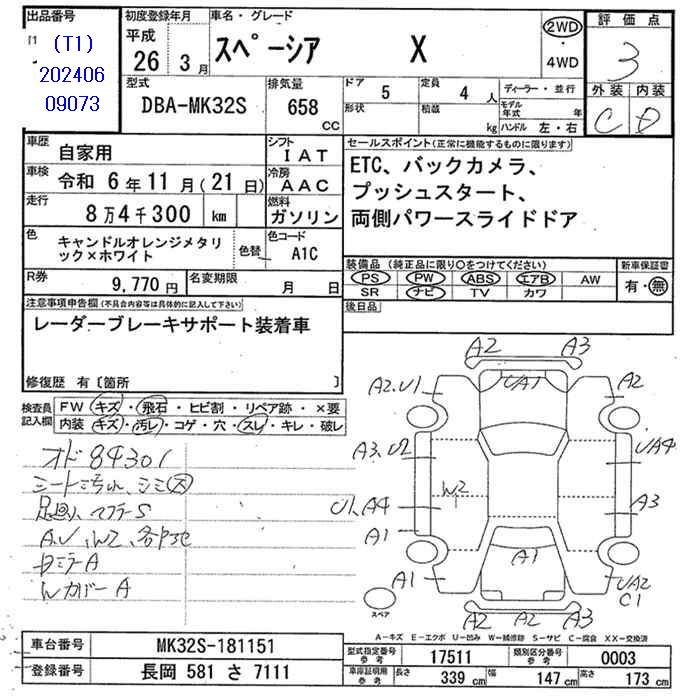 出品番号
(T1)
202406
09073
初度登録年月
平成
26 3月
車名・グレード
スペーシア X
2WD
・
4WD
評価点
3
外装 内装
C D
型式
DBA-MK32S
排気量
658
cc
ドア
5
形状
定員
4 人
積載
kg
ディーラー・並行
モデル
年式 年
ハンドル 左・右
車歴
自家用
シフト
IAT
車検
令和 6年11月(21日)
冷房
AAC
走行
8万4千300 km
燃料
ガソリン
セールスポイント(正常に機能するものに限ります)
ETC、バックカメラ、
プッシュスタート、
両側パワースライドドア
色
キャンドルオレンジメタリ
ック×ホワイト
色替
色コード
A1C
R券
9,770円
名変期限
月 日
装備品(純正品に限り○をつけてください)
PS PW ABS エアB AW
SR ナビ TV カワ
新車保証書
有・無
後日品
注意事項申告欄(不具合内容等は具体的に記入して下さい)
レーダーブレーキサポート装着車
修復歴 有〔箇所 〕
検査員
記入欄
FW キズ・飛石・ヒビ割・リペア跡・×要
内装 キズ・汚レ・コゲ・穴・スレ・キレ・破レ
オド 84301
シート汚れ、シミ(大)
足廻り、マフラーS
A.U、W2、各所
ミラーA
カバーA
A2 A3
A2.U1 UA1 A2
A3.U2 UA4
W2
U1.A4 A3
A1
A1
A1 UA2
C1
スペア
A2 A2 A3
A―キズ E―エクボ U―凹み W―補修跡 S―サビ C―腐食 XX―交換済
車台番号
MK32S-181151
登録番号
長岡 581 さ 7111
型式指定番号
参考
17511
類別区分番号
参考
0003
車庫証明寸法
参考
長さ 339 cm 幅 147 cm 高さ 173 cm